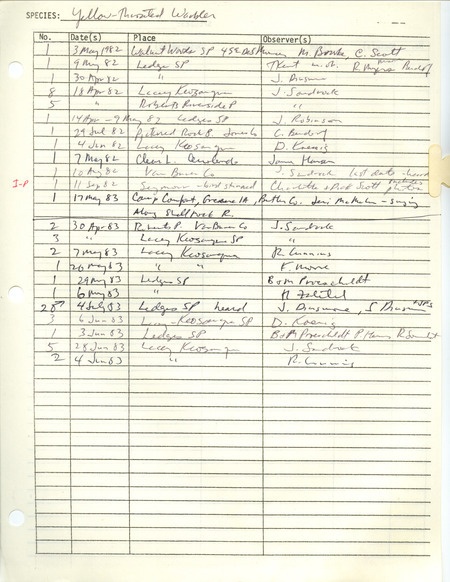 SPECIES: Yellow-Throated Warbler
No. Date(s) Place Observer(s)
1 3 May 1982 Walnut Woods SP M. Brooke, C. Scott
1 9 May 82 Ledges SP
1 30 Apr 82 " J. Dinsmore
8 18 Apr 82 Lacey Keosauqua J. Sandrock
5 " Roberts Riverside P "
1 14 Apr - 9 May 82 Ledges SP J. Robinson
1 29 Jul 82 Pictured Rock P. Jones Co C. Bendorf
1 4 Jun 82 Lacey Keosauqua D. Koenig
1 7 May 82 James Hansen
1 10 Aug 82 Van Buren Co J. Sandrock last date heard
I-P 1 11 Sep 82 Seymour - bird stunned Charlotte & Scott includes photos
1 17 May 83 Camp Comfort, Greene IA, Butler Co. - singing
Along Shell Rock R.
2 30 Apr 83 Roberts P. Van Buren Co J. Sandrock
3 " Lacey Keosauqua SP "
2 7 May 83 Lacey Keosauqua R. Cummins
1 26 May 83 " " F. Moore
1 29 May 83 Ledges SP B & M Proescholdt
1 6 May 83 "
2 4 July 83 Ledges SP heard J. Dinsmore, S Dinsmore
3 6 Jun 83 Lacey-Keosauqua SP D. Koenig
1 3 Jun 83 Ledges SP B & M Proescholdt
5 28 Jun 83 Lacey Keosauqua J. Sandrock
2 4 Jun 83 " R. Cummins